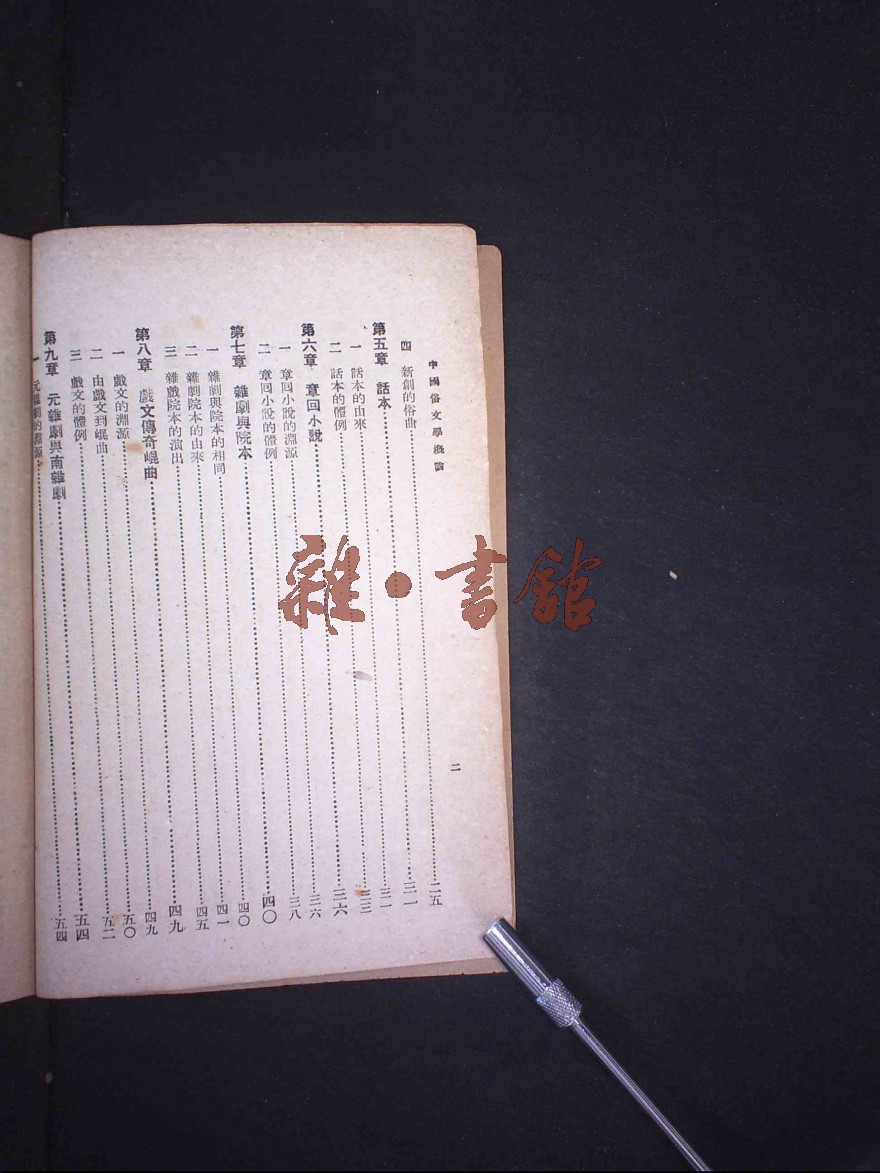 中國俗文學概論
二
四 新創的俗曲……二五
第五章 話本……三一
一 話本的由來……三一
二 話本的體例……三三
第六章 章回小說……三六
一 章回小說的淵源……三六
二 章回小說的體例……三八
第七章 雜劇與院本……四〇
一 雜劇與院本的相同……四〇
二 雜劇院本的由來……四一
三 雜戲院本的演出……四五
第八章 戲文傳奇崐曲……四九
一 戲文的淵源……四九
二 由戲文到崐曲……五〇
三 戲文的體例……五二
第九章 元雜劇與南雜劇……五四
一 元雜劇的淵源……五四
雜·書館